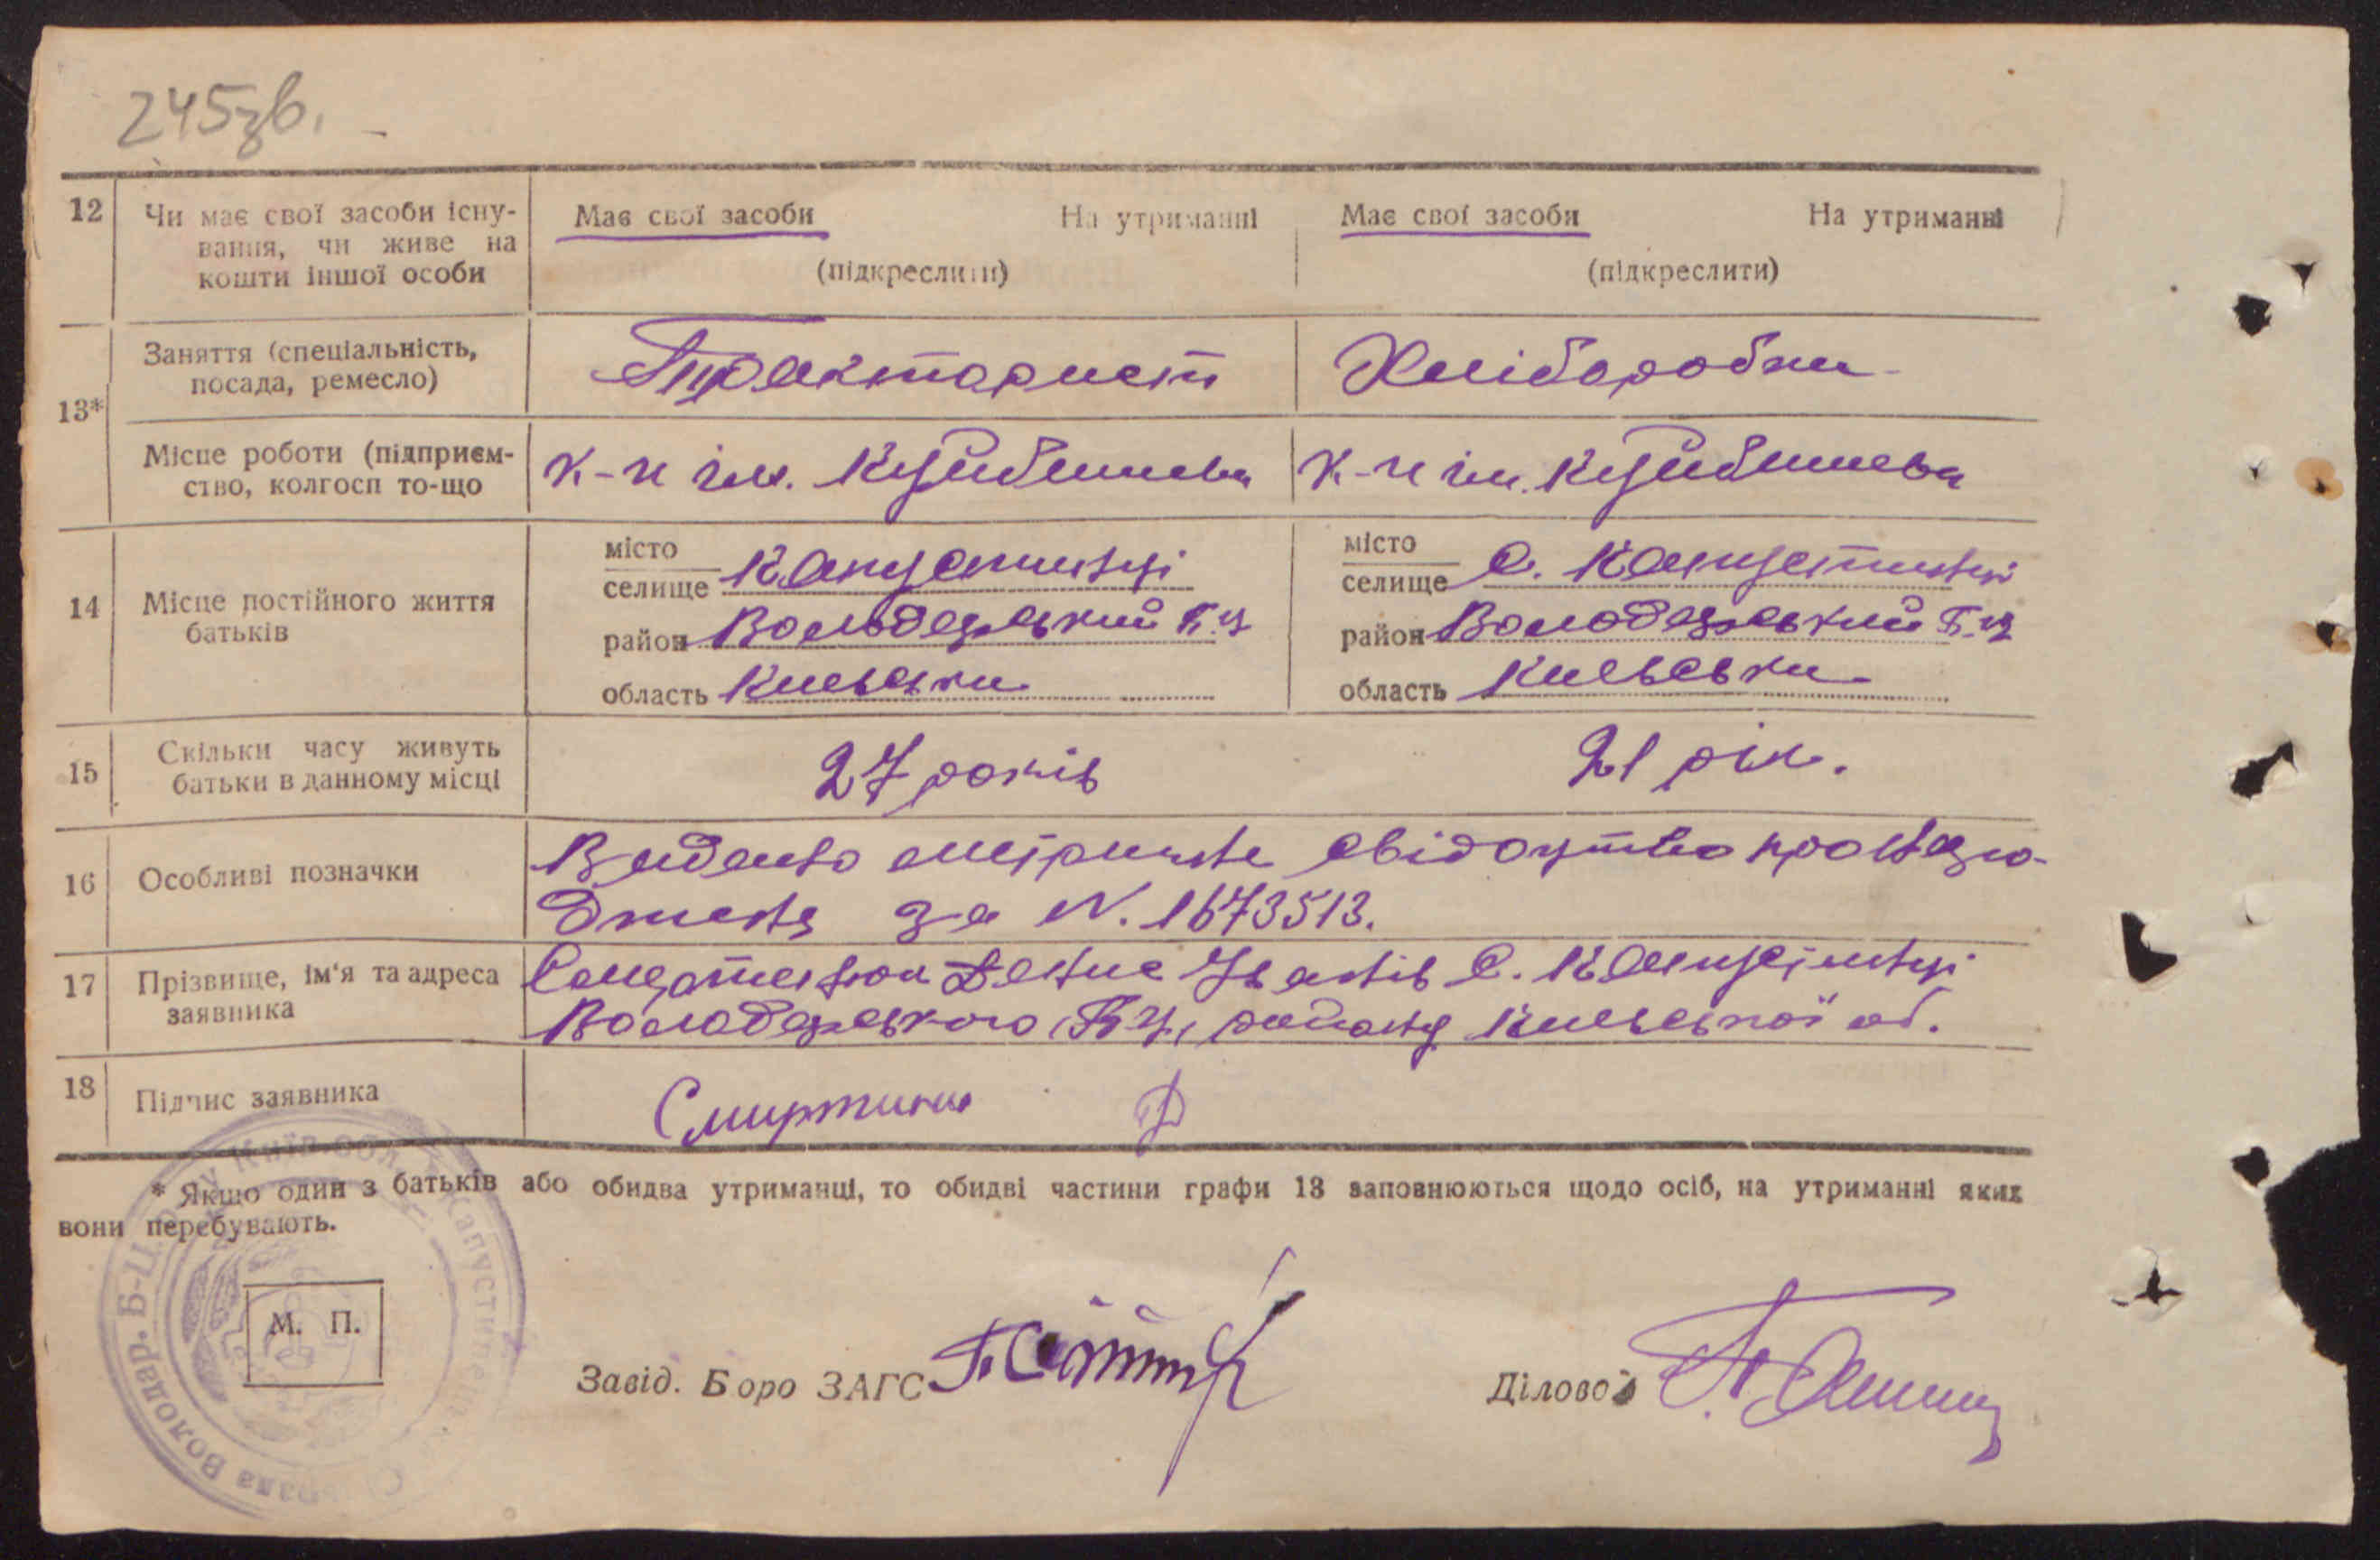 245зв.
12 Чи має свої засоби існу- Має свої засоби На утриманні Має свої засоби На утриманні
вання, чи живе на
кошти іншої особи (підкреслити) (підкреслити)
Заняття (спеціальність, Тракторист Хлібаробка
посада, ремесло)
13*
Місце роботи (підприєм- к-п ім. Куйбишева к-п ім. Куйбишева
ство, колгосп то-що
місто місто
селище Капустинці селище с. Капустинці
14 Місце постійного життя
батьків район Володарський Б.Ц район Володарський Б.Ц
область Киевська область Киевська
15 Скільки часу живуть 27 років 21 рік.
батьки в данному місці
16 Особливі позначки Видано свідоцтво про народ-
дження за N. 1673513.
17 Прізвище, ім'я та адреса с. Капустинці
заявника Володарського Б.Ц. району Киевської об.
18 Підпис заявника
* Якщо один з батьків або обидва утриманці, то обидві частини графи 13 заповнюються щодо осіб, на утриманні яких
вони перебувають.
М. П.
Завід. Бюро ЗАГС Діловод